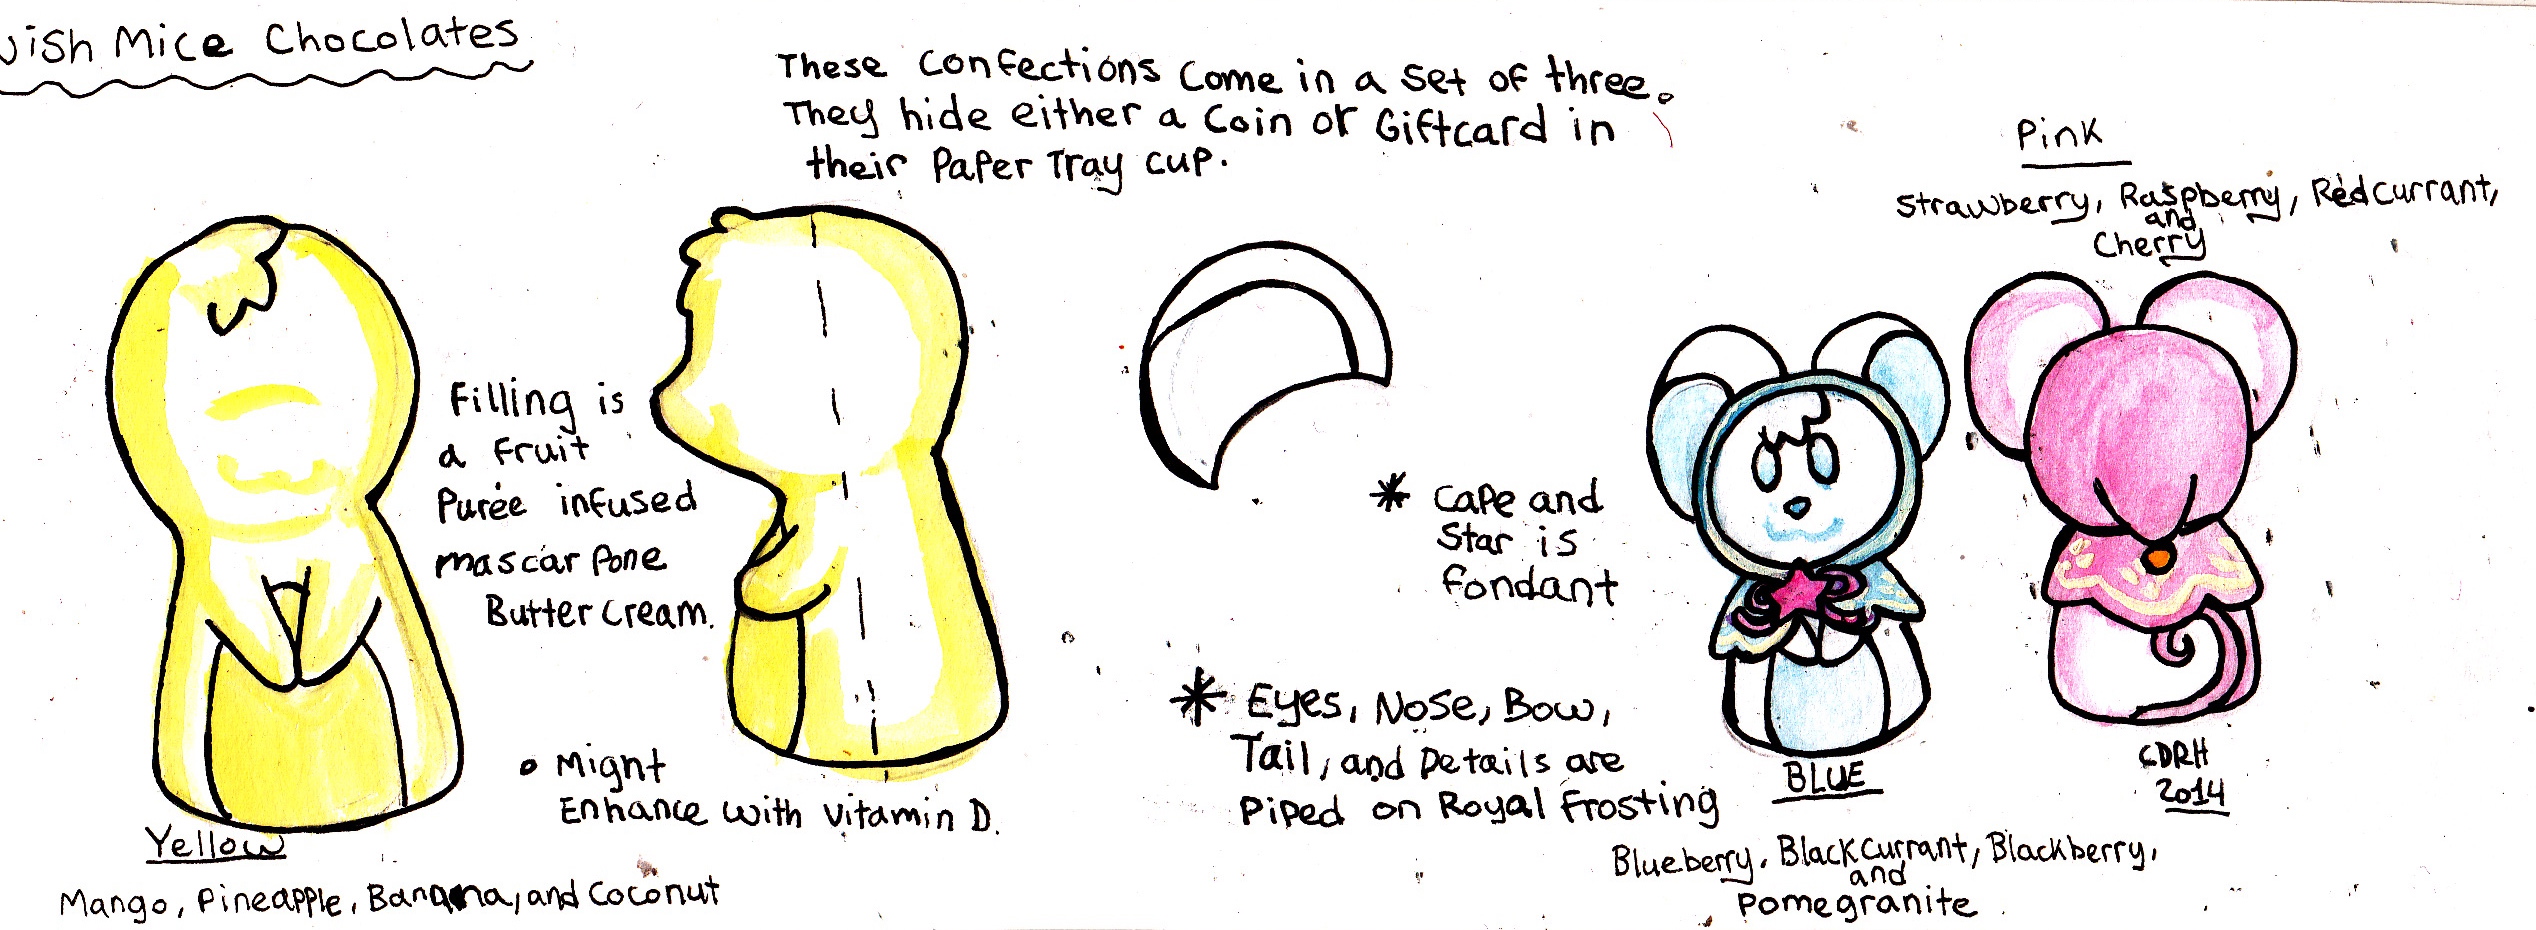 ish Mice Chocolates
These Confections Come in a Set of three.
They hide either a Coin or Giftcard in
their Paper Tray cup.
Pink
Strawberry, Raspberry, Redcurrant,
and
Cherry
Filling is
a Fruit
Purée infused
mascarpone
Butter cream.
* Cape and
Star is
fondant
* Eyes, Nose, Bow,
Tail, and Details are
Piped on Royal Frosting
• Mignt
Enhance with Vitamin D.
Yellow
Mango, Pineapple, Banana, and Coconut
BLUE
Blueberry, Blackcurrant, Blackberry,
and
Pomegranite
CDRH
2014